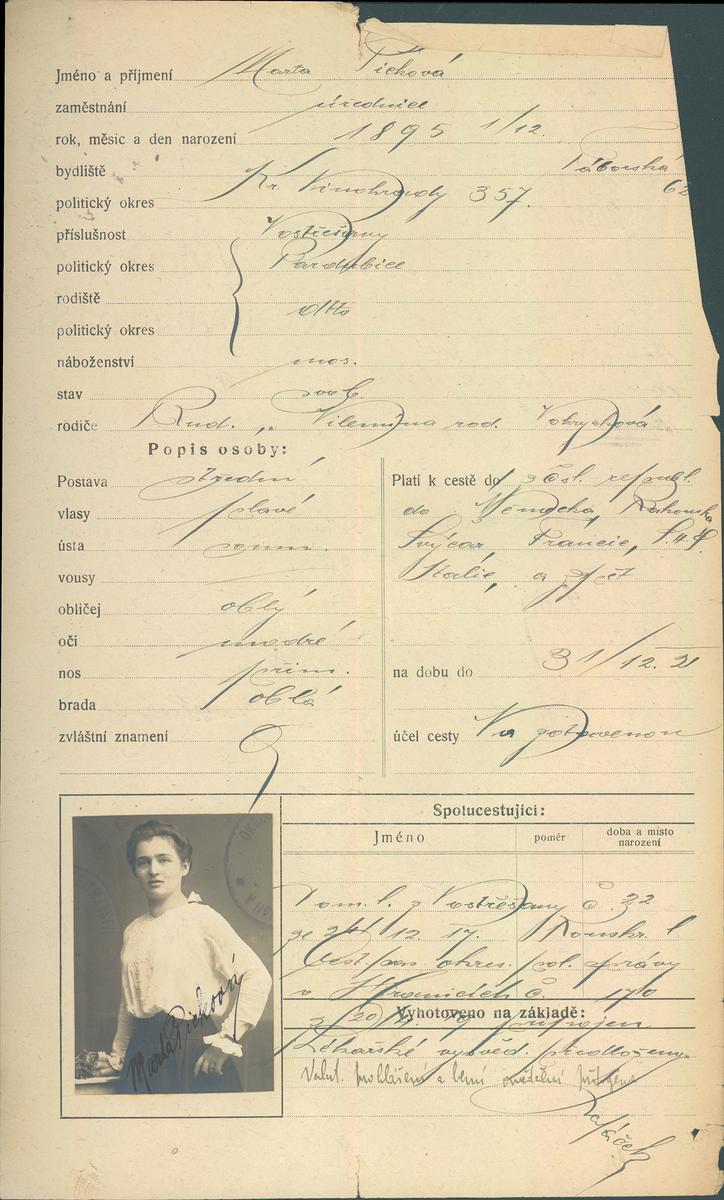 Jméno a příjmení Marta Picková
zaměstnání úřednice
rok, měsíc a den narození 1895 1/12.
bydliště Táborská 62
politický okres Kr. Vinohrady 357.
příslušnost Vostřešany
politický okres Pardubice
rodiště dtto
politický okres
náboženství mos.
stav svob.
rodiče Rud. „ Vilemína rod. Vohryzková
Popis osoby:
Postava střední
vlasy plavé
ústa soum.
vousy
obličej oblý
oči modré
nos přim.
brada oblá
zvláštní znamení
Platí k cestě do z čsl. republ.
do Německa, Rakouska
Švýcar, Francie, S.H.S.
Italie, a zpět
na dobu do 31/12. 21
účel cesty Na zotavenou
Spolucestující:
Jméno poměr doba a místo narození
Dom. l. z Vostřešany č. 22
ze 24/12. 17. l
Cest. pas okres. pol. správy
v Hranicích č. 170
Vyhotoveno na základě:
z 20/ připojen
Lékařské vysvěd. předloženo
prohlášení a berní
Marta Picková